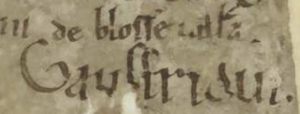 m de blosseuilla
Gauffridum.